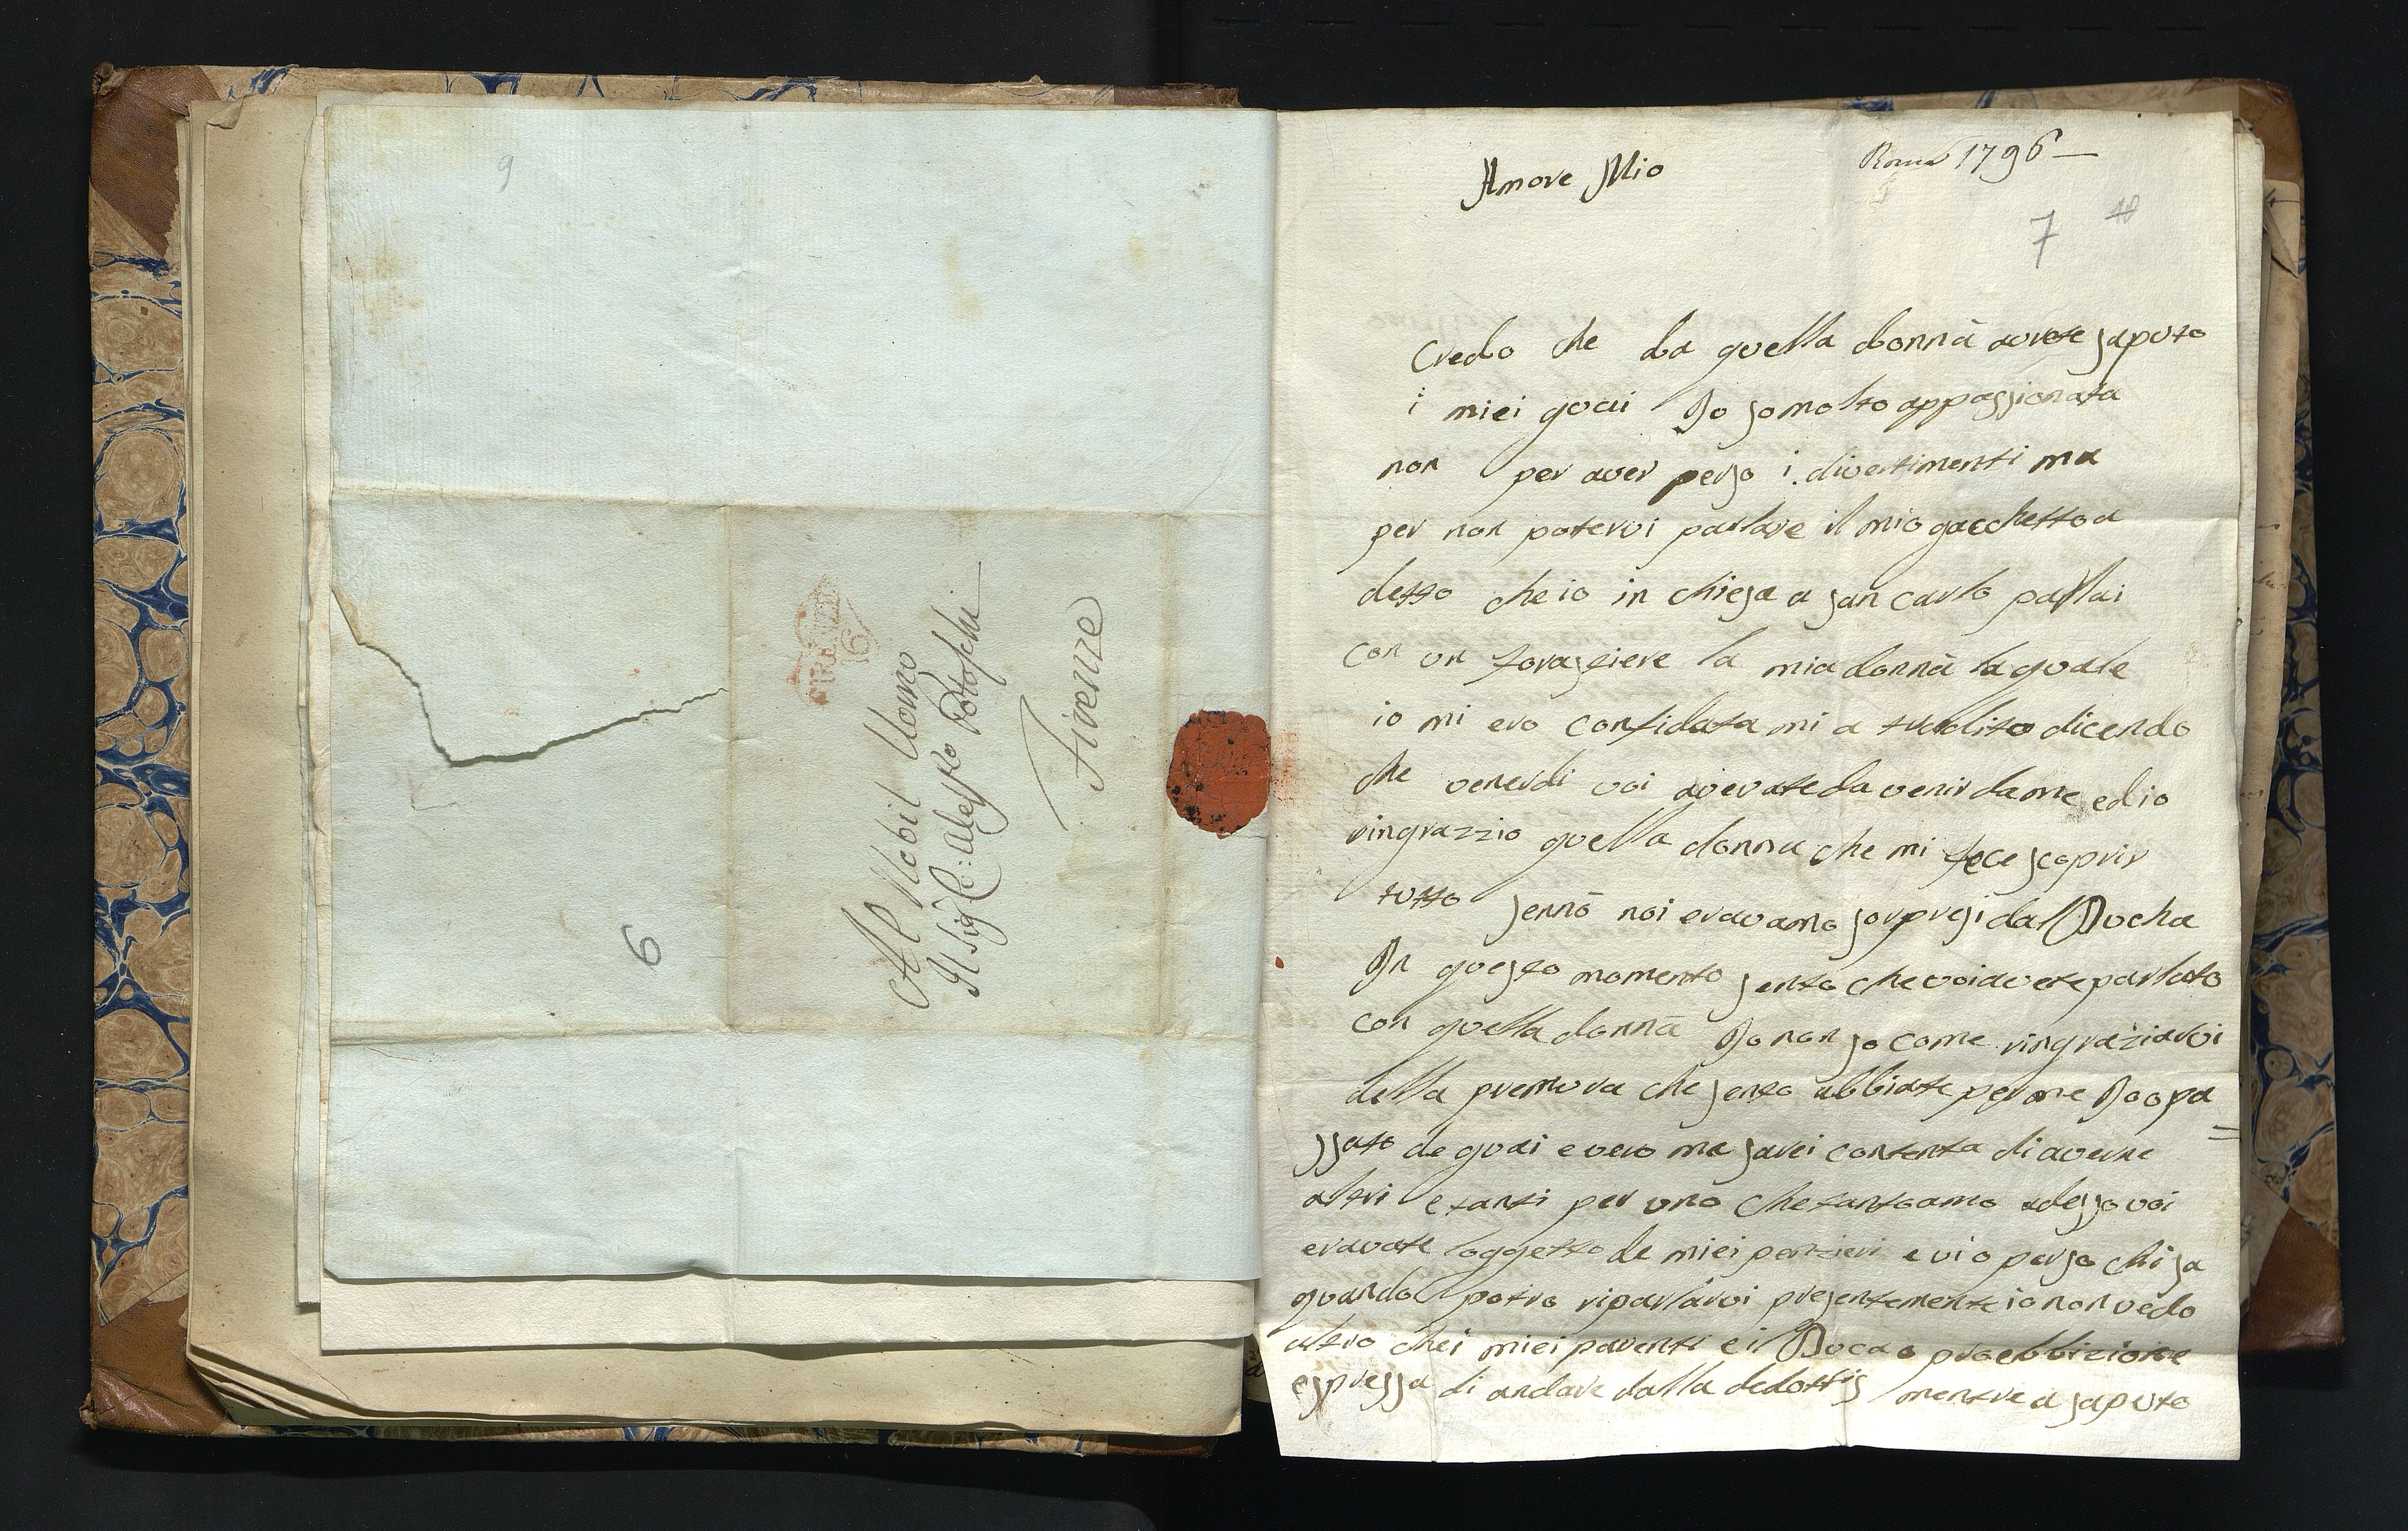 9
6
FIRENZE
16
Al Nobil Uomo
Il Sigr Co: Alessio Potoschi
Firenze
Roma 1796
Amore Mio
7 10
Credo che da quella donna avete saputo
i miei guai Io so molto appassionata
non per aver perso i divertimenti ma
per non potervi parlare il mio gacchetto a
detto che io in chiesa a san carlo parlai
con un forastiere la mia donna la quale
io mi ero confidata mi a tradito dicendo
che venerdi voi avevate da venir da me ed io
ringrazzio quella donna che mi fece scoprir
tutto senno noi eravamo sorpresi dal Ducha
In questo momento sento che voi avete parlato
con quella donna Io non so come ringraziarvi
della premura che sento abbiate per me Io o pa
=
ssato de guai e vero ma sarei contenta di averne
altri e tanti per uno che tanto amo adesso voi
eravate l oggetto de miei penzieri e vi o perso chi sa
quando potro riparlarvi presentemente io non vedo
altro che i miei parenti e il Duca o proebbizione
espressa di andare dalla dedottis mentre a saputo